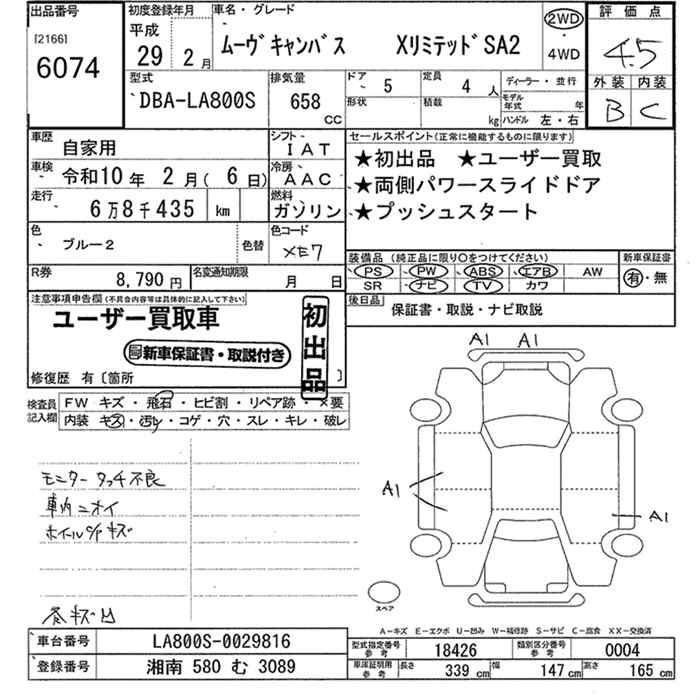 出品番号
[2166]
6074
初度登録年月
平成
29年 2月
車名・グレード
ムーヴキャンバス XリミテッドSA2
2WD
・
4WD
評価点
4.5
外装 内装
B C
型式
DBA-LA800S
排気量
658 CC
ドア 5
形状
定員 4人
積載 kg
ディーラー・並行
モデル年式 年
ハンドル 左・右
車歴 自家用
シフト IAT
車検 令和10年 2月( 6日)
冷房 AAC
走行 6万8千435 km
燃料 ガソリン
色 ブルー2 色替
色コード XE7
R券 8,790円
名変通知期限 月 日
セールスポイント(正常に機能するものに限ります)
★初出品 ★ユーザー買取
★両側パワースライドドア
★プッシュスタート
装備品 (純正品に限り○をつけてください)
PS PW ABS エアB AW
SR ナビ TV カワ
新車保証書
有・無
後日品 保証書・取説・ナビ取説
注意事項申告欄(不具合内容等は具体的に記入して下さい)
ユーザー買取車
新車保証書・取説付き
初出品
修復歴 有〔箇所 〕
検査員記入欄
FW キズ・飛石・ヒビ割・リペア跡・×要
内装 キズ・汚れ・コゲ・穴・スレ・キレ・破レ
モニター タッチ不良
車内ニオイ
ホイールC/Pキズ
各キズ凹
A1 A1
A1
A1
スペア
A-キズ E-エクボ U-凹み W-補修跡 S-サビ C-腐食 XX-交換済
車台番号 LA800S-0029816
登録番号 湘南 580 む 3089
型式指定番号 参考 18426
類別区分番号 参考 0004
車庫証明用 参考 長さ 339 cm 幅 147 cm 高さ 165 cm